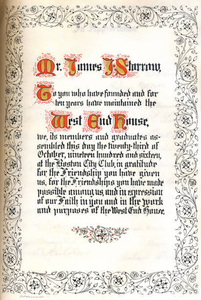 Mr. James J. Storrow,
To you who have founded and for
ten years have maintained the
West End House,
we, its members and graduates as-
sembled this day the twenty-third of
October, nineteen hundred and sixteen,
at the Boston City Club, in gratitude
for the Friendship you have given
us, for the Friendships you have made
possible among us, and in expression
of our Faith in you and in the work
and purposes of the West End House.